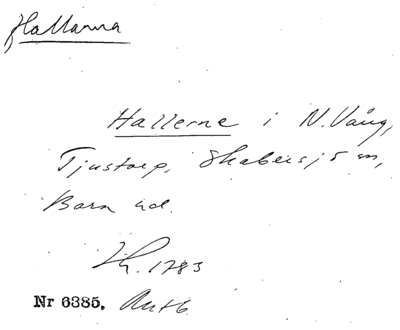 Hallarna
Hallerne i N. Vång,
Tjustorp, Skabersjö sn,
Bara hd.
1783
Nr 6385.